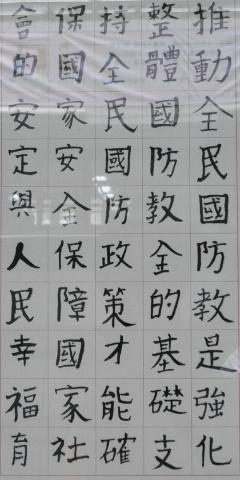 推動全民國防教是強化
整體國防教全的基礎支
持全民國防政策才能確
保國家安全保障國家社
會的安定與人民幸福育